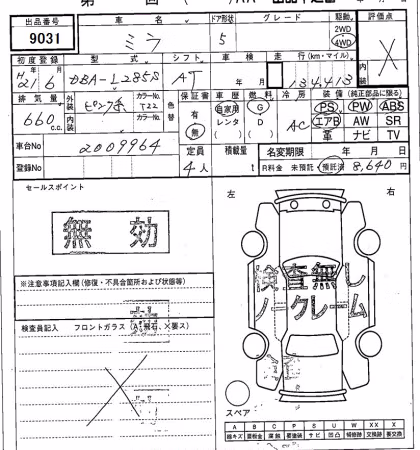 出品番号 車名 ドア形状 グレード 駆動 評価点
9031 ミラ 5 2WD 4WD ×
初度登録 型式 シフト 車検 走行(km・マイル)
H21年6月 DBA-L285S AT 年 月 134,413
排気量 外装 ピンク系 カラーNo. T22 色替 保証書 車歴 燃料 冷房 装備(純正部品に限る)
660c.c. 内装 カラーNo. 有 無 自家用 レンタ G D AC PS PW ABS
エアB AW SR
革 ナビ TV
車台No 2009964 定員 積載量 名変期限 年 月 日
登録No 4人 t R料金 未預託 預託済 8,640円
セールスポイント 左 右
無効
※注意事項記入欄(修復・不具合箇所および状態等)
検査無し
ノークレーム
検査員記入 フロントガラス(A,飛石,×要ス)
スペア
A B C P S U W XX X
線キズ 要板金 腐蝕 要塗装 サビ 凹凸 補修跡 交換跡 要交換